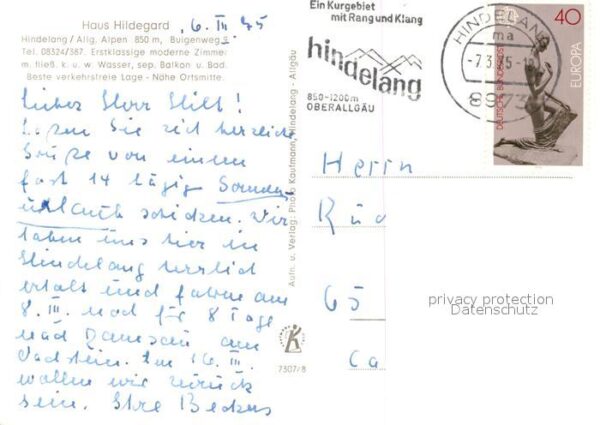 Haus Hildegard
Hindelang / Allg. Alpen 850 m, Bulgenweg
Tel. 08324/387. Erstklassige moderne Zimmer
m. fließ. k. u. w. Wasser, sep. Balkon u. Bad.
Beste verkehrsfreie Lage - Nähe Ortsmitte.
6. III. 75
Lieber Herr Hilt!
Lassen Sie sich herzliche
Grüße von einem
fast 14 tägig Sonnen-
urlaub schicken. Wir
haben uns hier in
Hindelang herrlich
erholt und fahren am
8. III. noch für 8 Tage
nach Ramsau am
Dachstein. Am 16. III.
wollen wir zurück
sein. Ihre Beckers
Aufn. u. Verlag: Photo Kaufmann, Hindelang - Allgäu
7307/8
Ein Kurgebiet
mit Rang und Klang
hindelang
850-1200m
OBERALLGÄU
HINDELANG
ma
-7.3.75-1
8973
40
DEUTSCHE BUNDESPOST
EUROPA
Herrn
Rüd
65
privacy protection
Datenschutz